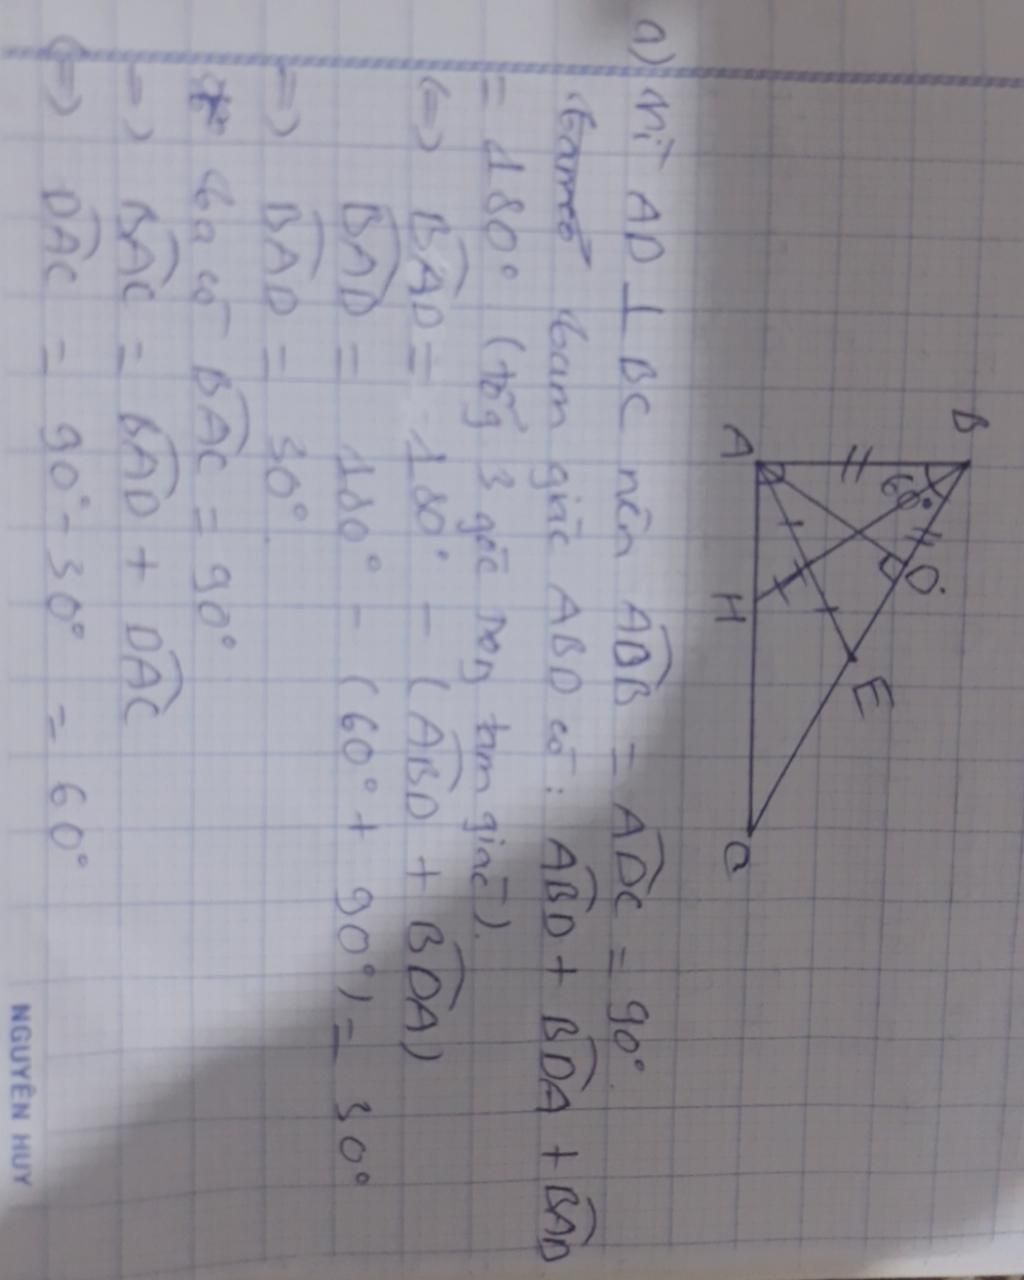 B
A
60°
D
H
E
C
a) Vì AD ⊥ BC nên ADB = ADC = 90°.
tam giác ABD có: ABD + BDA + BAD
= 180° (tổg 3 góc tam giác).
<=> BAD = 180° - (ABD + BDA)
BAD = 180° - (60° + 90°) = 30°
=> BAD = 30°.
* ta có BAC = 90°
-> BAC = BAD + DAC
<=> DAC = 90° - 30° = 60°
NGUYÊN HUY